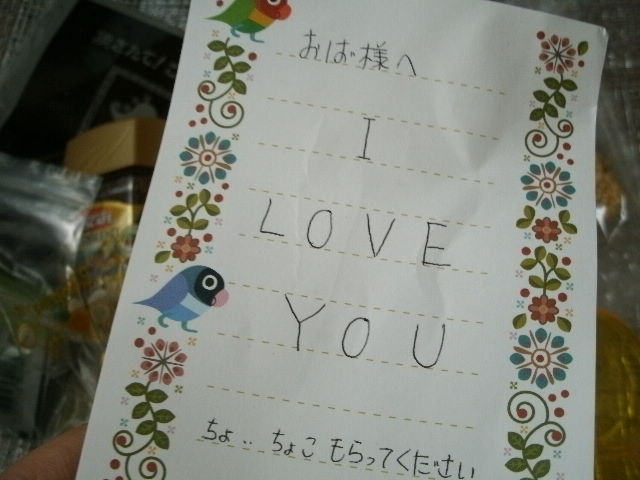 おば様へ
I
LOVE
YOU
ちょ‥ ちょこ もらってください